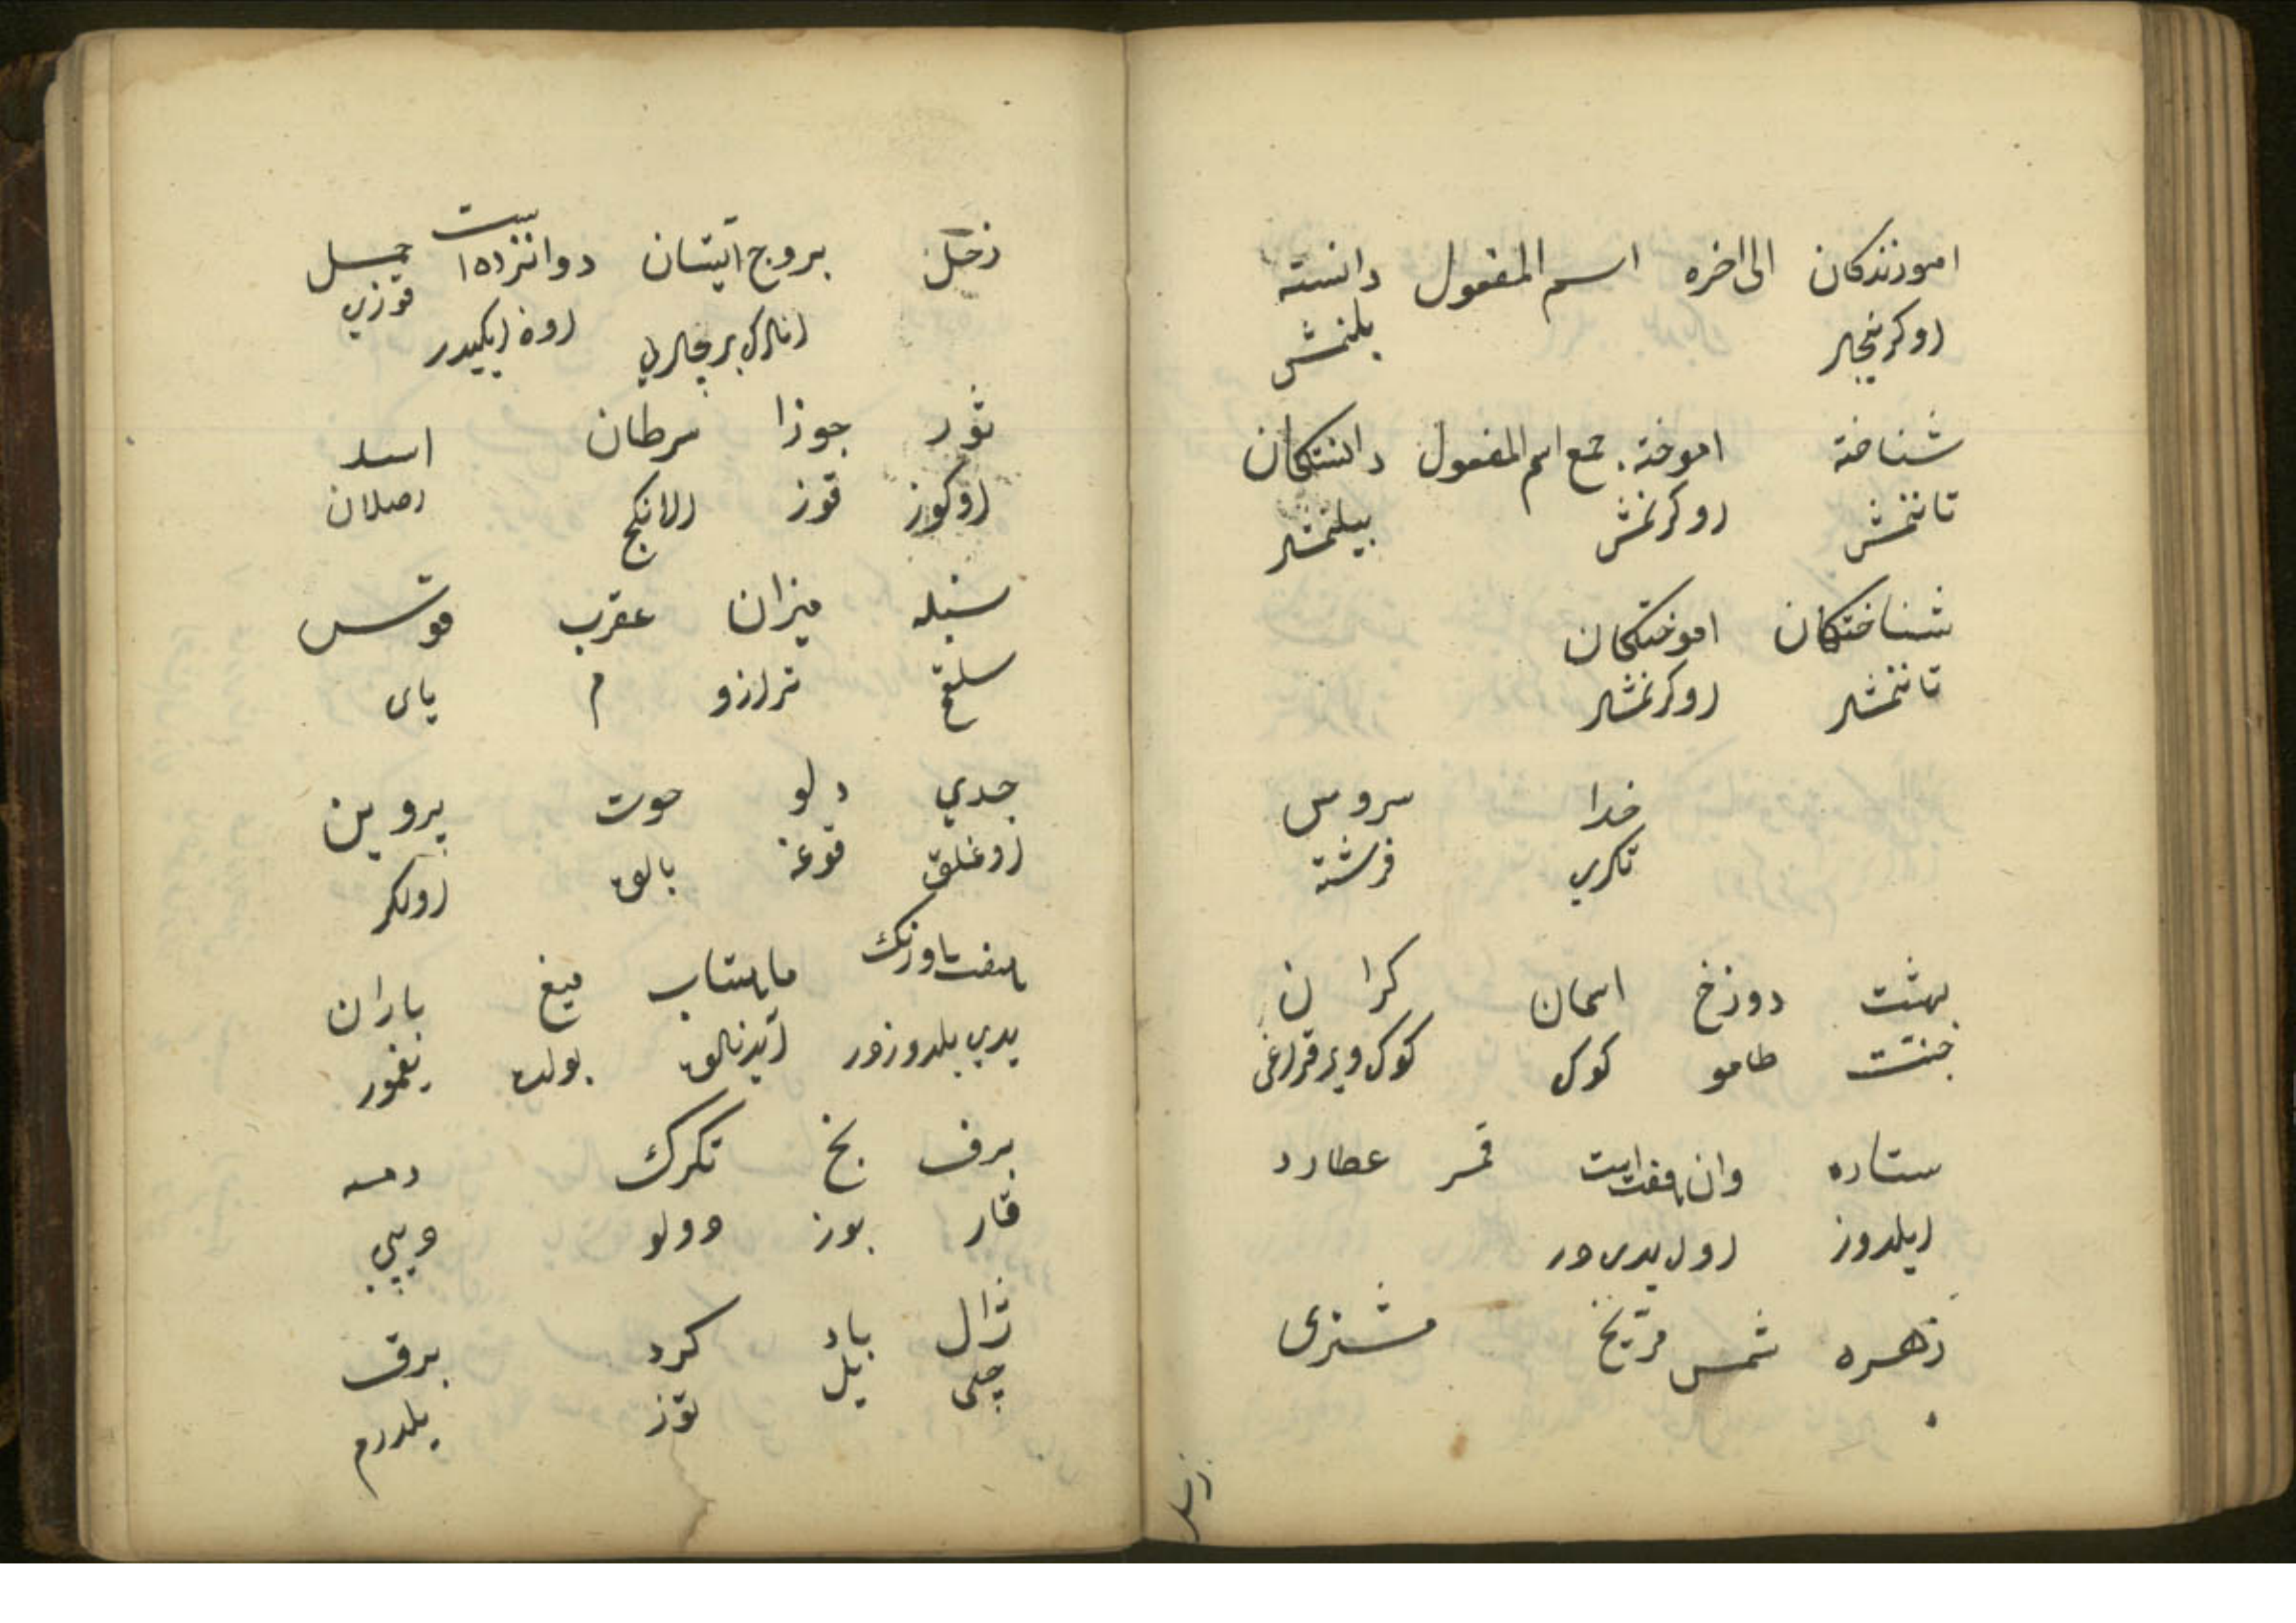 اموزندكان الی اخره اسم المفعول دانسته
اوكرنيجلر بلنمش
شناخته اموخته جمع اسم المفعول دانستكان
تاننمش اوكرنمش بيلنمشلر
شناختكان اموختكان
تاننمشلر اوكرنمشلر
خدا سروس
تكري فرشته
بهشت دوزخ اسمان كران
جنت طامو كوك كوك ويرقراغی
ستاره وان هفت است قمر عطارد
ايلدوز اول يدی در
زهره شمس مريخ مشتری
زحل
زحل بروج ايشان دوانزده است حمل
انلرك برجلری اون ايكيدر قوزي
ثور جوزا سرطان اسد
اوكوز قوز النكج ارصلان
سنبله ميزان عقرب قوس
سلقم ترازو م يای
جدي دلو حوت پروين
اوغلق قوغه بالق اولكر
هفت اورنك ماهتاب ميغ باران
يدي يلدوزدر آيدنلق بولت يغمور
برف يخ تكرك دمه
قار بوز دولو ديپي
ژال باد كرد برق
چی يل توز يلدرم